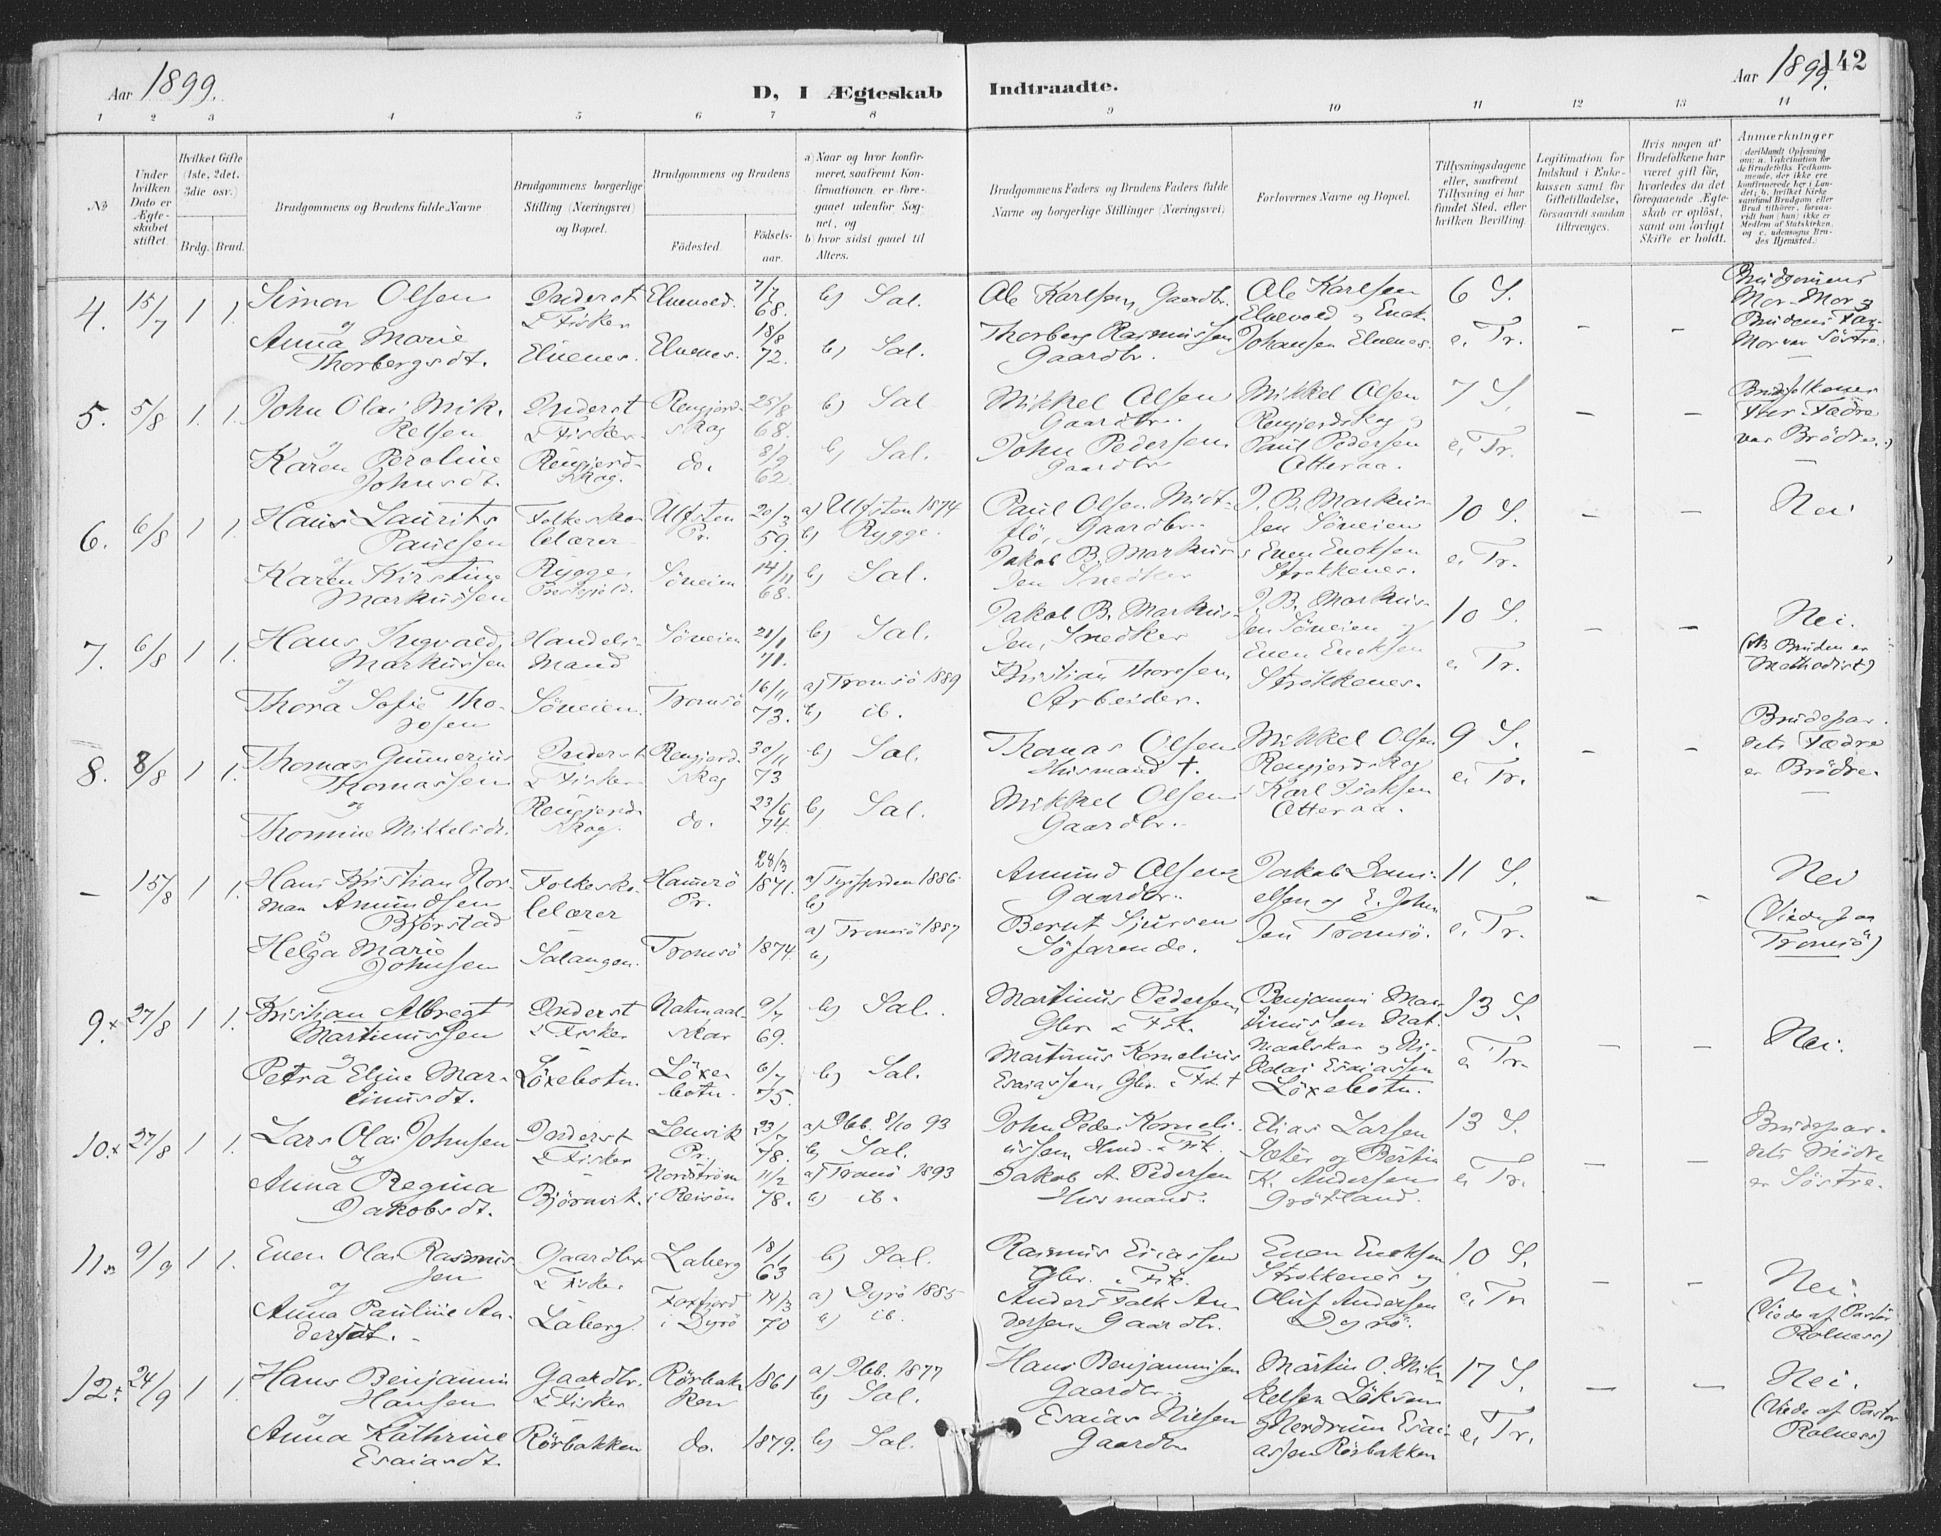 Aar 1899.
D, I Ægteskab
Indtraadte.
Aar 1899.
142
1 2 3 4 5 6 7 8 9 10 11 12 13 14
No
Under hvilken Dato er Ægteskabet stiftet.
Hvilket Gifte (1ste, 2det, 3die osv.)
Brdg. Brud.
Brudgommens og Brudens fulde Navne
Brudgommens borgerlige Stilling (Næringsvei) og Bopæl.
Brudgommens og Brudens
Fødested.
Fødselsaar.
a) Naar og hvor konfirmeret, saafremt Konfirmationen er foregaaet udenfor Sognet, og
b) hvor sidst gaaet til Alters.
Brudgommens Faders og Brudens Faders fulde Navne og borgerlige Stillinger (Næringsvei)
Forlovernes Navne og Bopæl.
Tillysningsdagene eller, saafremt Tillysning ei har fundet Sted, efter hvilken Bevilling
Legitimation for Indskud i Enkekassen samt for Giftetilladelse, forsaavidt saadan tiltrænges.
Hvis nogen af Brudefolkene har været gift før, hvorledes da det foregaaende Ægteskab er opløst, samt om lovligt Skifte er holdt.
Anmærkninger
4. 15/7 1 1. Simon Olsen
og
Anna Marie
Thorbergsdt.
Inderst
& Fisker
Elvenes.
Elvevold.
Elvenes.
7/7
68.
18/8
72.
b) Sal.
b) Sal.
Ole Karlsen, Gaardbr.
Thorberg Rasmussen
Gaardbr.
Ole Karlsen
Elvevold og Enok
Johansen Elvenes.
6 S.
e. Tr.
- -
Brudgommens
Mor-Mor og
Brudens Far-
Mor var Søstre.
5. 5/8 1. 1. John Olai Mik-
kelsen
og
Karen Peroline
Johnsdt.
Inderst
& Fisker
Rengjerd-
skog.
Rengjerd-
skog
do.
25/8
68.
8/9
62.
b) Sal
b) Sal.
Mikkel Olsen
Gaardbr.
John Pedersen
Gaardbr.
Mikkel Olsen
Rengjerdskog og
Paul Pedersen
Atteraa.
7 S.
e. Tr.
- -
Brudefolkenes
Fædre
var Brødre.
6. 6/8 1 1. Hans Laurits
Paulsen
og
Karen Kirstine
Markussen
Folkesko-
lelærer
Rygge
Ulfsten
Pr.
Søveien
20/3
59.
14/11
68.
a) Ulfsten 1874
b) Rygge.
b) Sal.
Paul Olsen Midt-
flö, Gaardbr.
Jakob B. Markus-
sen Snedker
J. B. Markus-
sen Söveien
Even Enoksen
Strokkenes.
10 S.
e. Tr.
- -
Nei
7. 6/8 1 1. Hans Ingvald
Markussen
og
Thora Sofie Tho-
resen
Handels-
mand
Söveien.
Söveien
Tromsö
21/1
71.
16/11
73.
b) Sal.
a) Tromsö 1889
b) ib.
Jakob B. Markus-
sen, Snedker
Kristian Thoresen,
Arbeider.
J. B. Markus-
sen Söveien og
Even Enoksen
Strokkenes.
10 S.
e. Tr.
- -
Nei.
(NB Bruden er
Methodist)
8. 8/8 1 1. Thomas Gunnerius
Thomassen
og
Thomine Mikkelsdt.
Inderst
& Fisker
Rengjerd-
skog.
Rengjerd-
skog
do.
30/11
73
23/6
74.
b) Sal.
b) Sal.
Thomas Olsen
Husmand †.
Mikkel Olsen
Gaardbr.
Mikkel Olsen
Rengjerdskog
Karl Isaksen
Atteraa.
9 S.
e. Tr.
- -
Brudepar-
dets Fædre
er Brødre.
- 15/8 1 1. Hans Kristian Nor-
man Amundsen
Björstad
og
Helga Marie
Johnsen
Folkesko-
lelærer
Salangen.
Hamerö
Pr.
Tromsö
28/3
1871.
1874.
a) Tysfjorden 1886.
b)
a) Tromsö 1887
b)
Amund Olsen
Gaardbr.
Bernt Sjursen
Söfarende.
Jakob Dani-
elsen og E. John-
sen Tromsö.
11 S.
e. Tr.
- -
Nei
(Viede paa
Tromsö)
9.x 27/8 1 1. Kristian Albregt
Martinussen
og
Petra Eline Mar-
tinusdt.
Inderst
& Fisker
Löxebotn.
Natmaal-
skar
Löxe-
botn.
9/7
69.
6/7
75.
b) Sal.
b) Sal.
Martinus Pedersen,
Gbr. & Fisk.
Martinus Kornelius
Esaiassen, Gbr. & Fisk †
Benjamin Mar-
tinussen Nat-
maalskar og Ni-
kolai Esaiassen
Löxebotn.
13 S.
e. Tr.
- -
Nei.
10.x 27/8 1 1. Lars Olai Johnsen
og
Anna Regina
Jakobsdt.
Inderst
& Fisker
Björnvik.
Lenvik
Pr.
Nordström
i Reisen
23/7
78.
11/2
78.
a) Ibb. 8/10 93
b) Sal.
a) Tromsö 1893
b) ib.
John Peder Korneli-
ussen Husmd. & Fisk.
Jakob A. Pedersen
Husmand.
Elias Larsen
Sæter og Bertin
K. Andersen
Grötland.
13 S.
e. Tr.
- -
Brudepar-
dets Mödre
er Söstre.
11.x 9/9 1 1. Even Olai Rasmus-
sen
og
Anna Pauline An-
dersdt.
Gaardbr.
& Fisker
Laberg.
Laberg
Foxfjord
i Dyrö
18/1
63
14/3
70
b) Sal.
a) Dyrö 1885
b) ib.
Rasmus Eliassen
Gbr. & Fisk.
Anders Falk An-
dersen Gaardbr.
Even Enoksen
Strokkenes og
Oluf Andersen
Dyrö.
10 S.
e. Tr
- -
Nei.
(Viede af Pastor
Rolness)
12.x 24/9 1 1. Hans Benjamin
Hansen
og
Anna Kathrine
Esaiasdt.
Gaardbr.
& Fisker
Rörbakken
Rörbak-
ken
do.
1861
1879.
a) Ibb. 1877
b) Sal.
b) Sal.
Hans Benjaminsen
Gaardbr.
Esaias Nilsen
Gaardbr
Martin O. Mik-
kelsen Löksen
og Nerdrum Esai-
assen Rörbakken
17 S.
e. Tr.
- -
Nei.
(Viede af Pastor
Rolness)